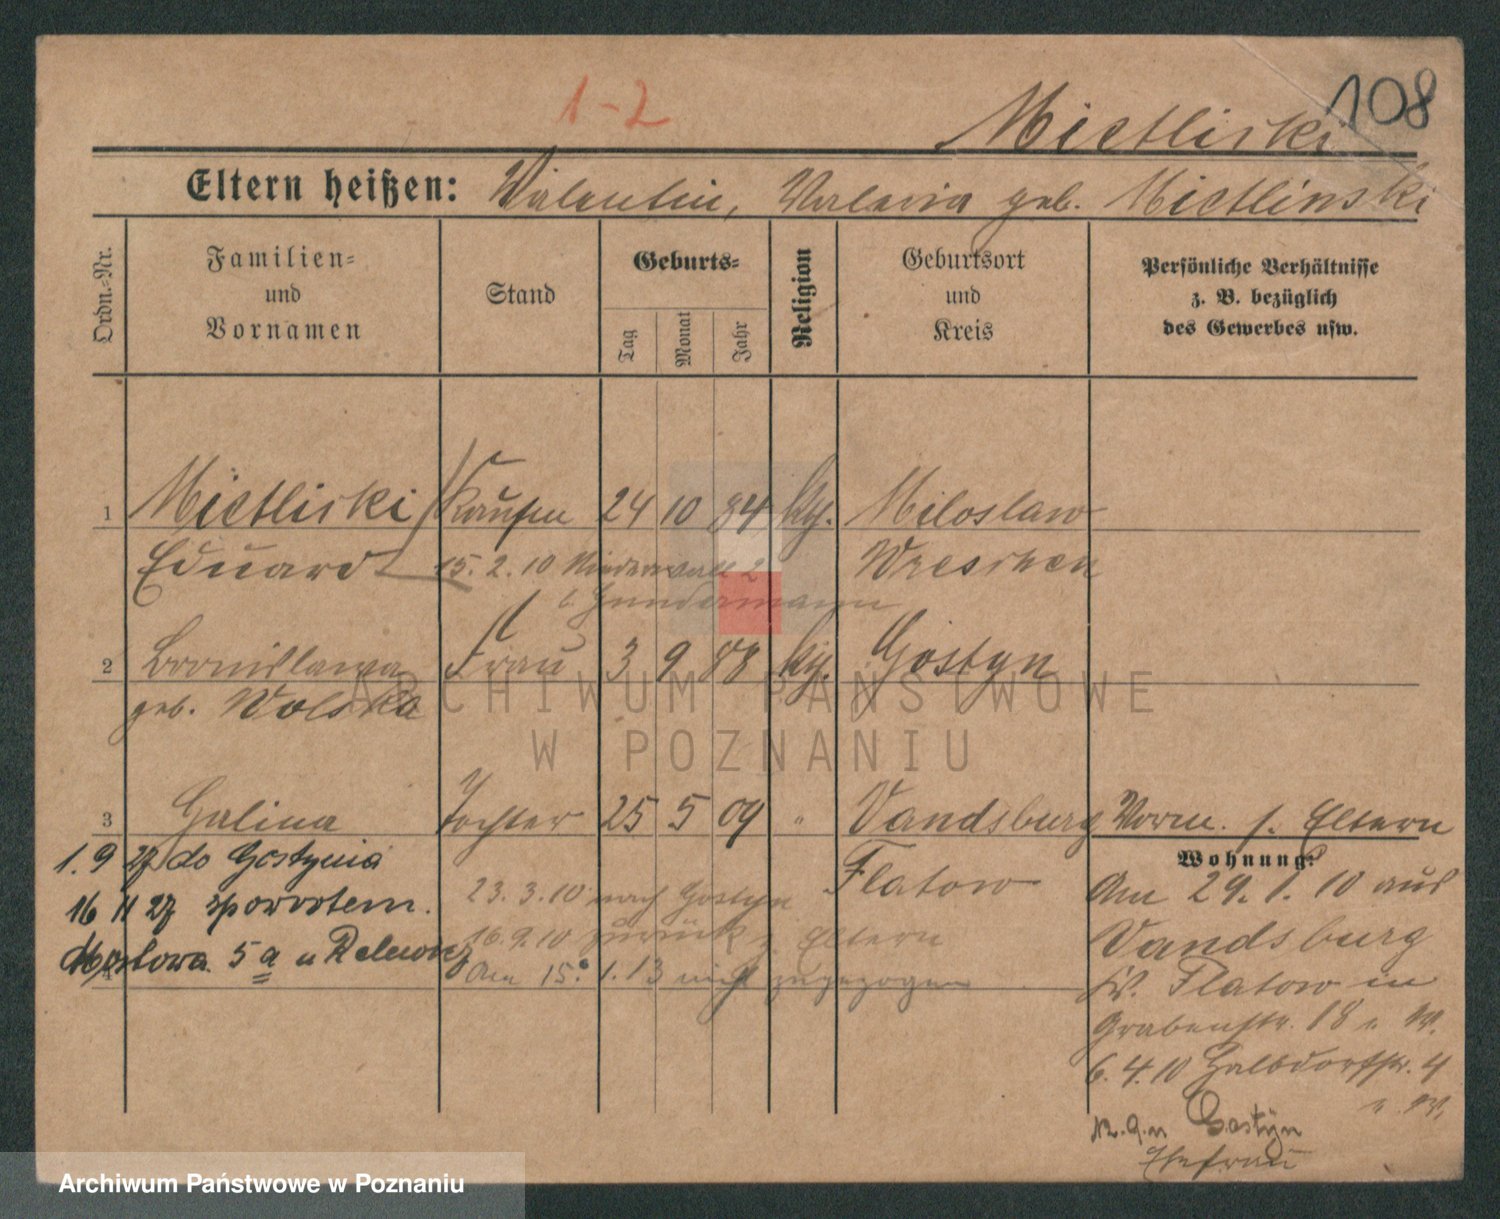 1-2
108
Mietliski
Eltern heißen: Valentin, Valeria geb. Mietlinski
Ordn.=Nr.
Familien=
und
Vornamen
Stand
Geburts=
Tag
Monat
Jahr
Religion
Geburtsort
und
Kreis
Persönliche Verhältnisse
z. B. bezüglich
des Gewerbes usw.
1 Mietliski Kaufm 24 10 84 kth. Miloslaw
Eduard 15. 2. 10 Niederwall 2 Wreschen
b. Gundermann
2 Bronislawa Frau 3 9 88 kth. Gostyn
geb. Wolska
3 Halina Tochter 25 5 09 " Vandsburg Vorm. s. Eltern
Flatow
1. 9 27 do Gostynia
16 11 27 zpowrotem.
Mostowa 5a u
4
23. 3. 10 nach Gostyn
16. 9. 10 zurück z. Eltern
Am 15. 1. 13 nicht zugezogen
Wohnung:
Am 29. 1. 10 aus
Vandsburg
Kr. Flatow in
Grabenstr. 18 u. W.
6. 4. 10 Halbdorfstr. 4
u. W.
Gostyn
Ehefrau
ARCHIWUM PAŃSTWOWE
W POZNANIU
Archiwum Państwowe w Poznaniu